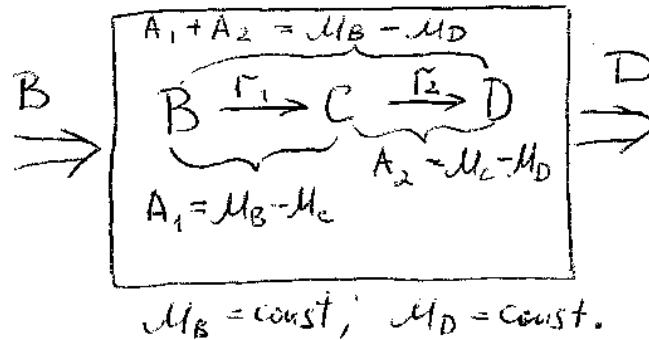 A₁ + A₂ = μ_B − μ_D
B
D
B r₁→ C r₂→ D
A₂ = μ_C − μ_D
A₁ = μ_B − μ_C
μ_B = const; μ_D = const.